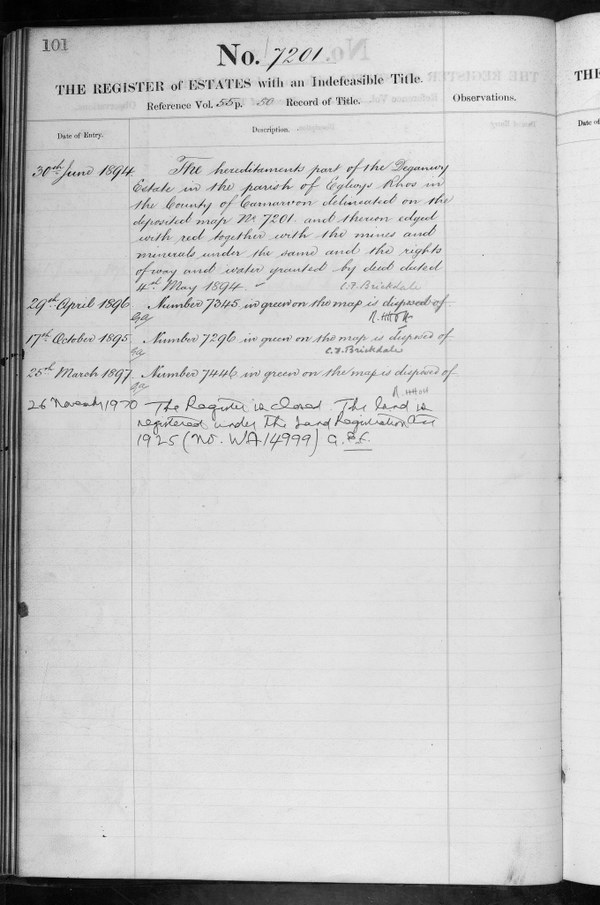 101
No. 7201.
THE REGISTER of ESTATES with an Indefeasible Title.
Reference Vol. 55 p. 50 Record of Title.
Observations.
Date of Entry.
Description.
30th June 1894 The hereditaments part of the Deganwy
Estate in the parish of Eglwys Rhos in
the County of Carnarvon delineated on the
deposited map No 7201 and thereon edged
with red together with the mines and
minerals under the same and the rights
of way and water granted by deed dated
4th May 1894. C.F. Brickdale
29th April 1896 Number 7345 in green on the map is disposed of
17th October 1895 Number 7296 in green on the map is disposed of
C.F. Brickdale
25th March 1897 Number 7446 in green on the map is disposed of
26 November 1970 The Register is closed. The land is
registered under the Land Registration Act
1925 (No. WA14999)
THE
Date of